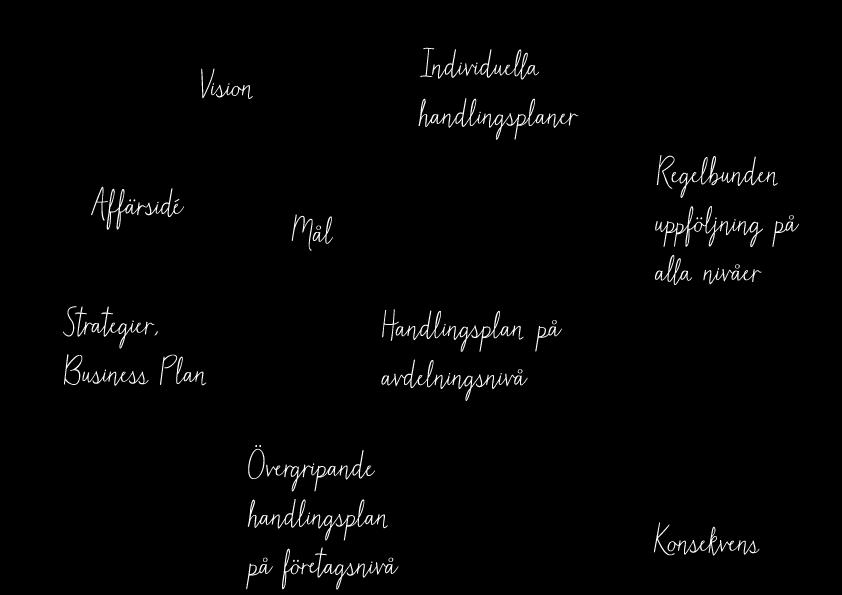 Vision
Individuella
handlingsplaner
Affärsidé
Mål
Regelbunden
uppföljning på
alla nivåer
Strategier,
Business Plan
Handlingsplan på
avdelningsnivå
Övergripande
handlingsplan
på företagsnivå
Konsekvens